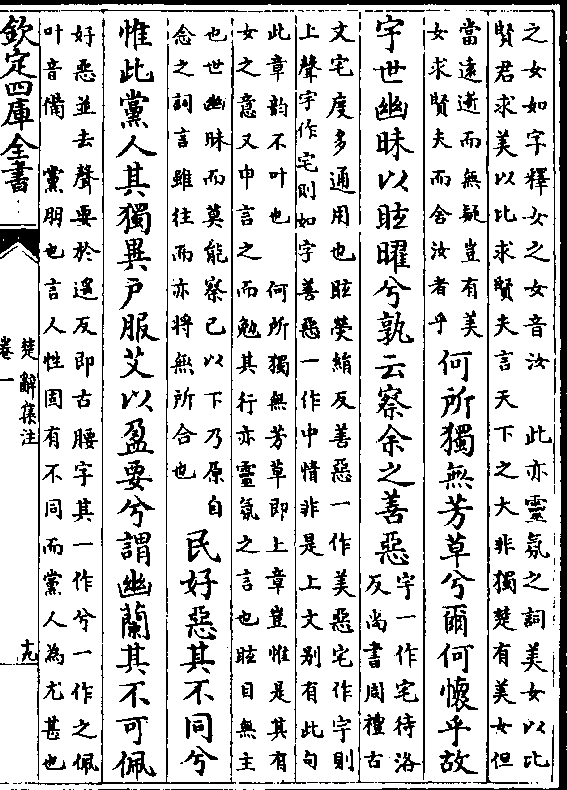 之女如字釋女之女音汝　此亦靈氛之詞美女以比
賢君求美以比求賢夫言天下之大非獨楚有美女但
當遠逝而無疑豈有美
女求賢夫而舍汝者乎
何所獨無芳草兮爾何懷乎故
宇世幽昧以眩曜兮孰云察余之善惡
宇一作宅待洛
反尚書周禮古
文宅度多通用也眩熒絹反善惡一作美惡宅作宇則
上聲宇作宅則如字善惡一作中情非是上文别有此句
此章韵不叶也　何所獨無芳草即上章豈惟是其有
女之意又申言之而勉其行亦靈氛之言也眩目無主
也世幽昧而莫能察已以下乃原自
念之詞言雖往而亦將無所合也
民好惡其不同兮
惟此黨人其獨異户服艾以盈要兮謂幽蘭其不可佩
好惡並去聲要於遥反即古腰字其一作兮一作之佩
叶音備　黨朋也言人性固有不同而黨人為尤甚也
欽定四庫全書
楚辭集注
卷一
十九